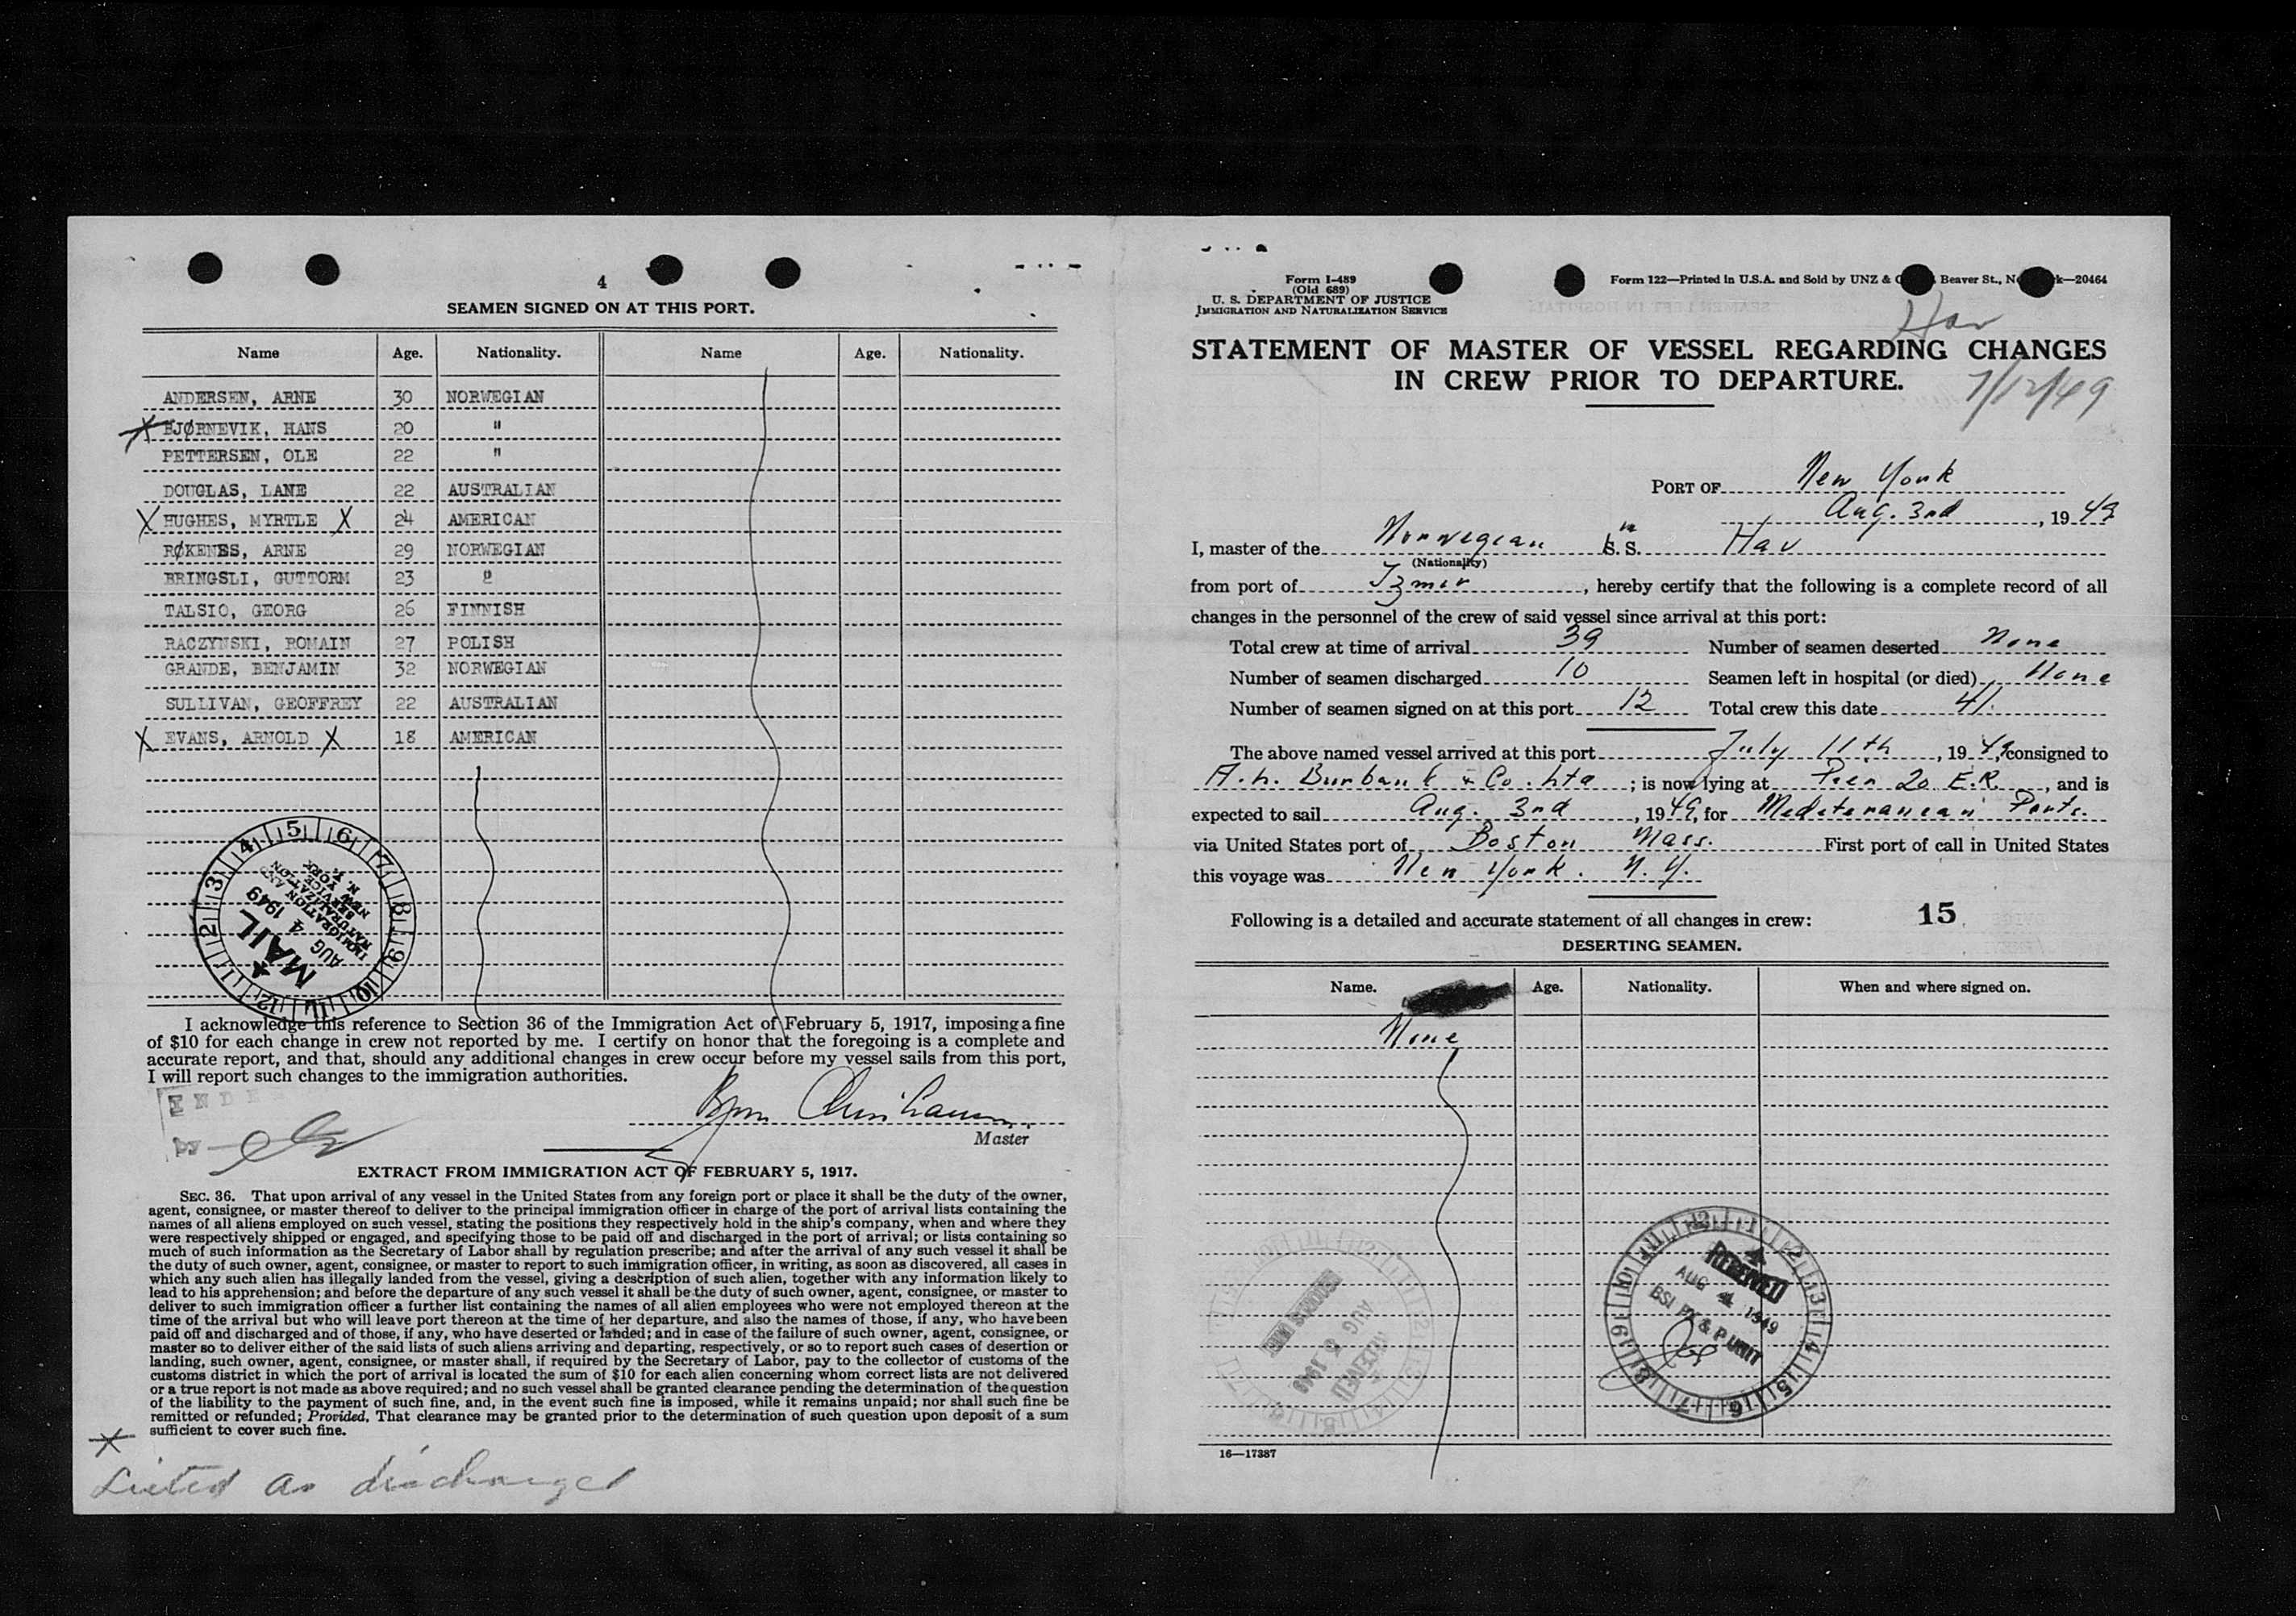 4
SEAMEN SIGNED ON AT THIS PORT.
Name Age. Nationality. Name Age. Nationality.
ANDERSEN, ARNE 30 NORWEGIAN
X BJØRNEVIK, HANS 20 "
PETTERSEN, OLE 22 "
DOUGLAS, LANE 22 AUSTRALIAN
X HUGHES, MYRTLE X 24 AMERICAN
RØKENES, ARNE 29 NORWEGIAN
BRINGSLI, GUTTORM 23 "
TALSIO, GEORG 26 FINNISH
RACZYNSKI, ROMAIN 27 POLISH
GRANDE, BENJAMIN 32 NORWEGIAN
SULLIVAN, GEOFFREY 22 AUSTRALIAN
X EVANS, ARNOLD X 18 AMERICAN
1 2 3 4 5 6 7 8 9 10 11 12
MAIL
AUG 4 1949
IMMIGRATION AND
NATURALIZATION
SERVICE
NEW YORK
N. Y.
I acknowledge this reference to Section 36 of the Immigration Act of February 5, 1917, imposing a fine
of $10 for each change in crew not reported by me. I certify on honor that the foregoing is a complete and
accurate report, and that, should any additional changes in crew occur before my vessel sails from this port,
I will report such changes to the immigration authorities.
Master
EXTRACT FROM IMMIGRATION ACT OF FEBRUARY 5, 1917.
SEC. 36. That upon arrival of any vessel in the United States from any foreign port or place it shall be the duty of the owner,
agent, consignee, or master thereof to deliver to the principal immigration officer in charge of the port of arrival lists containing the
names of all aliens employed on such vessel, stating the positions they respectively hold in the ship's company, when and where they
were respectively shipped or engaged, and specifying those to be paid off and discharged in the port of arrival; or lists containing so
much of such information as the Secretary of Labor shall by regulation prescribe; and after the arrival of any such vessel it shall be
the duty of such owner, agent, consignee, or master to report to such immigration officer, in writing, as soon as discovered, all cases in
which any such alien has illegally landed from the vessel, giving a description of such alien, together with any information likely to
lead to his apprehension; and before the departure of any such vessel it shall be the duty of such owner, agent, consignee, or master to
deliver to such immigration officer a further list containing the names of all alien employees who were not employed thereon at the
time of the arrival but who will leave port thereon at the time of her departure, and also the names of those, if any, who have been
paid off and discharged and of those, if any, who have deserted or landed; and in case of the failure of such owner, agent, consignee, or
master so to deliver either of the said lists of such aliens arriving and departing, respectively, or so to report such cases of desertion or
landing, such owner, agent, consignee, or master shall, if required by the Secretary of Labor, pay to the collector of customs of the
customs district in which the port of arrival is located the sum of $10 for each alien concerning whom correct lists are not delivered
or a true report is not made as above required; and no such vessel shall be granted clearance pending the determination of the question
of the liability to the payment of such fine, and, in the event such fine is imposed, while it remains unpaid; nor shall such fine be
remitted or refunded; Provided, That clearance may be granted prior to the determination of such question upon deposit of a sum
sufficient to cover such fine.
X
Listed as discharged
Form I-489
(Old 689)
U. S. DEPARTMENT OF JUSTICE
IMMIGRATION AND NATURALIZATION SERVICE
Form 122—Printed in U.S.A. and Sold by UNZ & Beaver St., 20464
Hav
7/12/49
STATEMENT OF MASTER OF VESSEL REGARDING CHANGES
IN CREW PRIOR TO DEPARTURE.
PORT OF New York
Aug. 3rd, 1949
I, master of the Norwegian S. S. Hav
(Nationality)
from port of Izmir, hereby certify that the following is a complete record of all
changes in the personnel of the crew of said vessel since arrival at this port:
Total crew at time of arrival 39 Number of seamen deserted None
Number of seamen discharged 10 Seamen left in hospital (or died) None
Number of seamen signed on at this port 12 Total crew this date 41.
The above named vessel arrived at this port July 11th, 1949, consigned to
A. h. Burbank & Co. Lta; is now lying at Pier 20 E.R., and is
expected to sail Aug. 3rd, 1949, for Mediteranean Ports.
via United States port of Boston Mass. First port of call in United States
this voyage was New York. N.Y.
Following is a detailed and accurate statement of all changes in crew: 15
DESERTING SEAMEN.
Name. Age. Nationality. When and where signed on.
None
RECEIVED
AUG 4 1949
BSI PX & P UNIT
RECEIVED
AUG
16—17387